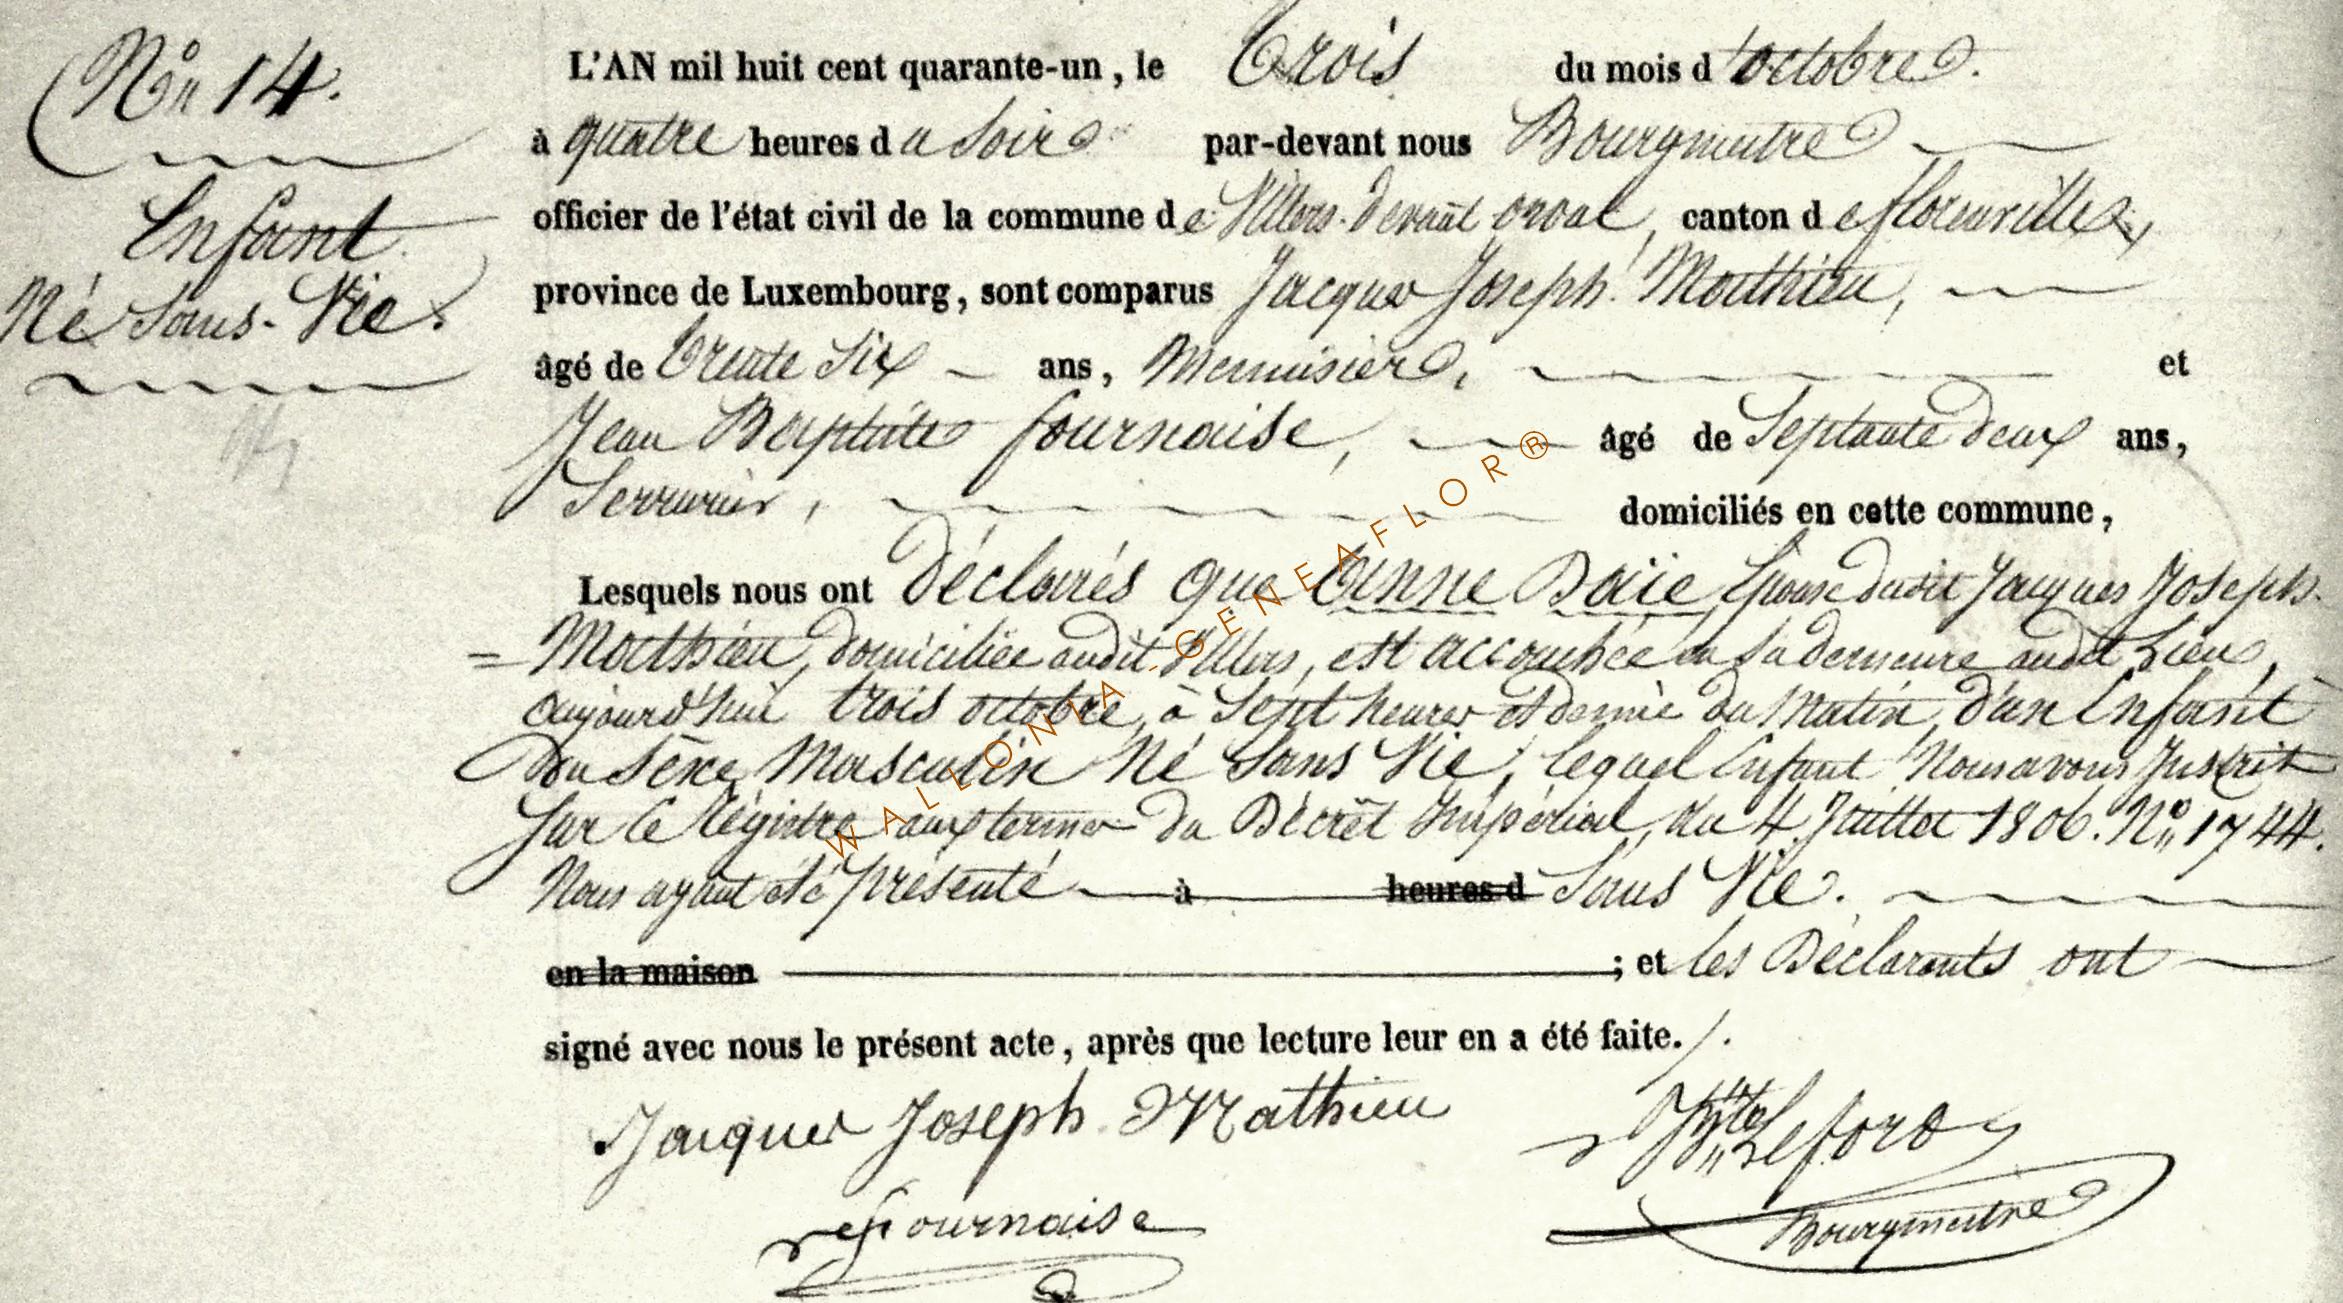 N° 14.
Enfant
Né Sans-Vie.
L'AN mil huit cent quarante-un, le trois du mois d'octobre.
à quatre heures du soir par-devant nous Bourgmestre
officier de l'état civil de la commune de Villers-devant orval, canton de florenville,
province de Luxembourg, sont comparus Jacques Joseph Mathieu,
âgé de trente six ans, Menuisier, et
Jean Baptiste fournaise, âgé de Septante deux ans,
Serrurier, domiciliés en cette commune,
Lesquels nous ont déclarés que Anne Daïe Epouse dudit Jacques Joseph
= Mathieu, domiciliée audit Villers, est accouchée en sa demeure audit Lieu,
aujourd'hui trois octobre, à Sept heures et demie du Matin, d'un Enfant
du Sèxe Masculin Né Sans Vie, lequel Enfant Nous avons Inscrit
Sur le régistre aux termes du Décrêt Impérial, du 4 Juillet 1806. N° 1744.
Nous ayant été présenté à heures d Sans Vie.
en la maison ; et les Déclarants ont
signé avec nous le présent acte, après que lecture leur en a été faite./.
Jacques Joseph Mathieu
fournaise
Bourgmestre
WALLONIA - GENEAFLOR®